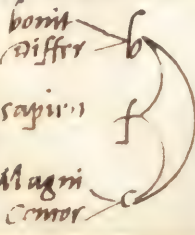 bonit
Differ b
sapien f
Magni
Contor c